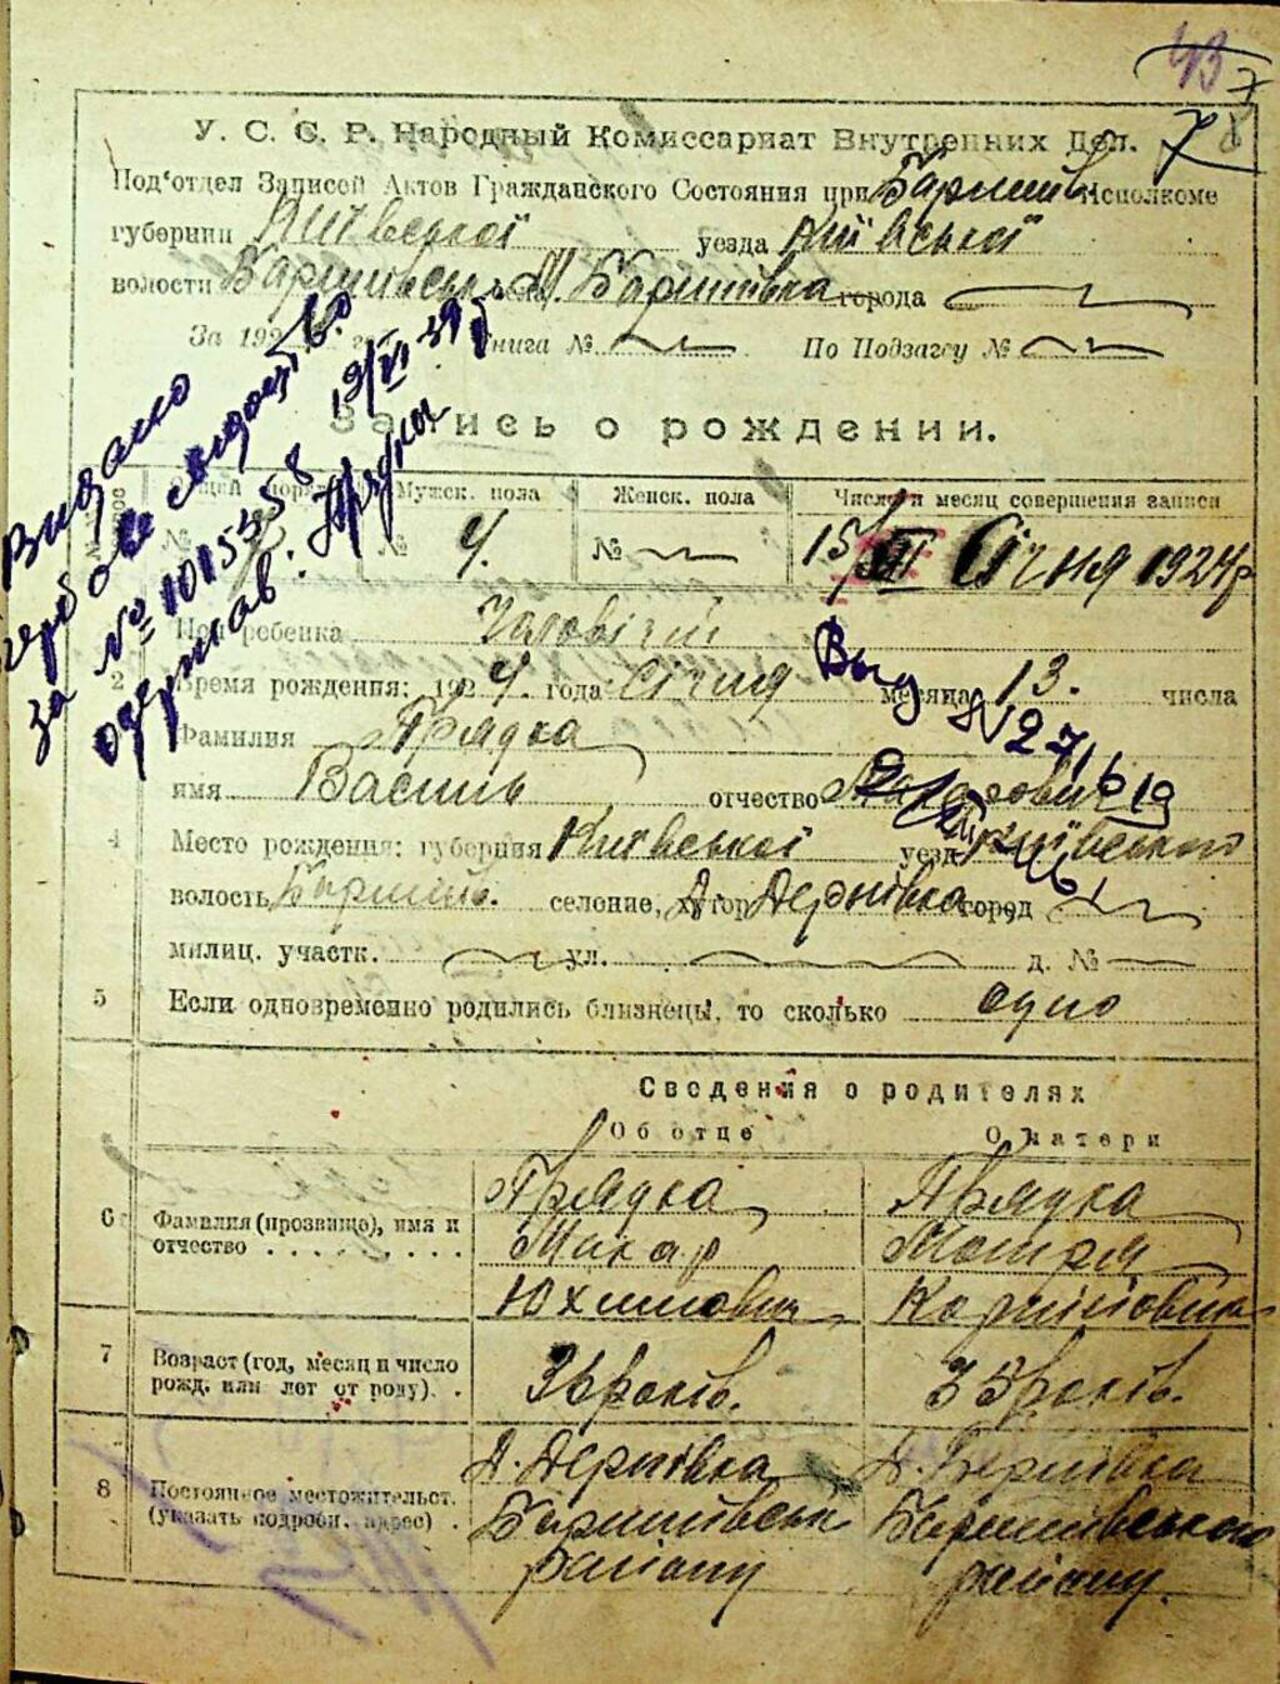 43
У. С. С. Р. Народный Комиссариат Внутренних Дел.
Под'отдел Записей Актов Гражданского Состояния при Баришів. Исполкоме
губернии Київської уезда Київської
волости Баришівськ. М. Баришівка города
За 192 г. Книга № По Подзагсу №
Запись о рождении.
Общий поряд. Мужск. пола Женск. пола Число и месяц совершения записи
№ 7 № 4. № 15/III Січня 1924 р
Пол ребенка Чоловічий
2 Время рождения: 1924. года Січня месяца 13. числа
Фамилия Прядка
имя Василь отчество Макарович
4 Место рождения: губерния Київської уезд Київського
волость Баришів. селение, хутор Д. Дернівка город
милиц. участк. ул. д. №
5 Если одновременно родились близнецы, то сколько одно
Сведения о родителях
Об отце О матери
6 Фамилия (прозвище), имя и отчество
Прядка Макар Юхимович
Прядка Мотря
7 Возраст (год, месяц и число рожд. или лет от роду).
36 років. 35 років.
8 Постоянное местожительст. (указать подробн. адрес)
Д. Дернівка Баришівськ району
Д. Дернівка Баришівського району.
Видано
гербове свидоцтво
за № 1015358 19/VI 39 р
одержав: Прядка
Выд